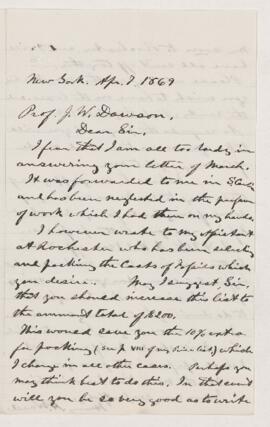 New York. Apr. 8 1869
Prof. J. W. Dawson.
Dear Sir.
I fear that I am all too tardy in
answering your letter of March.
It was forwarded to me in
and has been neglected in the
of work which I had then on my hands.
I however wrote to my assistant
at Rochester who has been selecting
and packing the Casts of Fossils which
you desire. May I suggest, Sir,
that you should increase this list to
the ammount total of $200.
This would save you the 10% extra
for packing (see p. VIII of my Price list) which
I charge in all other cases. Perhaps you
may think best to do this. In that event
will you be so very good as to write